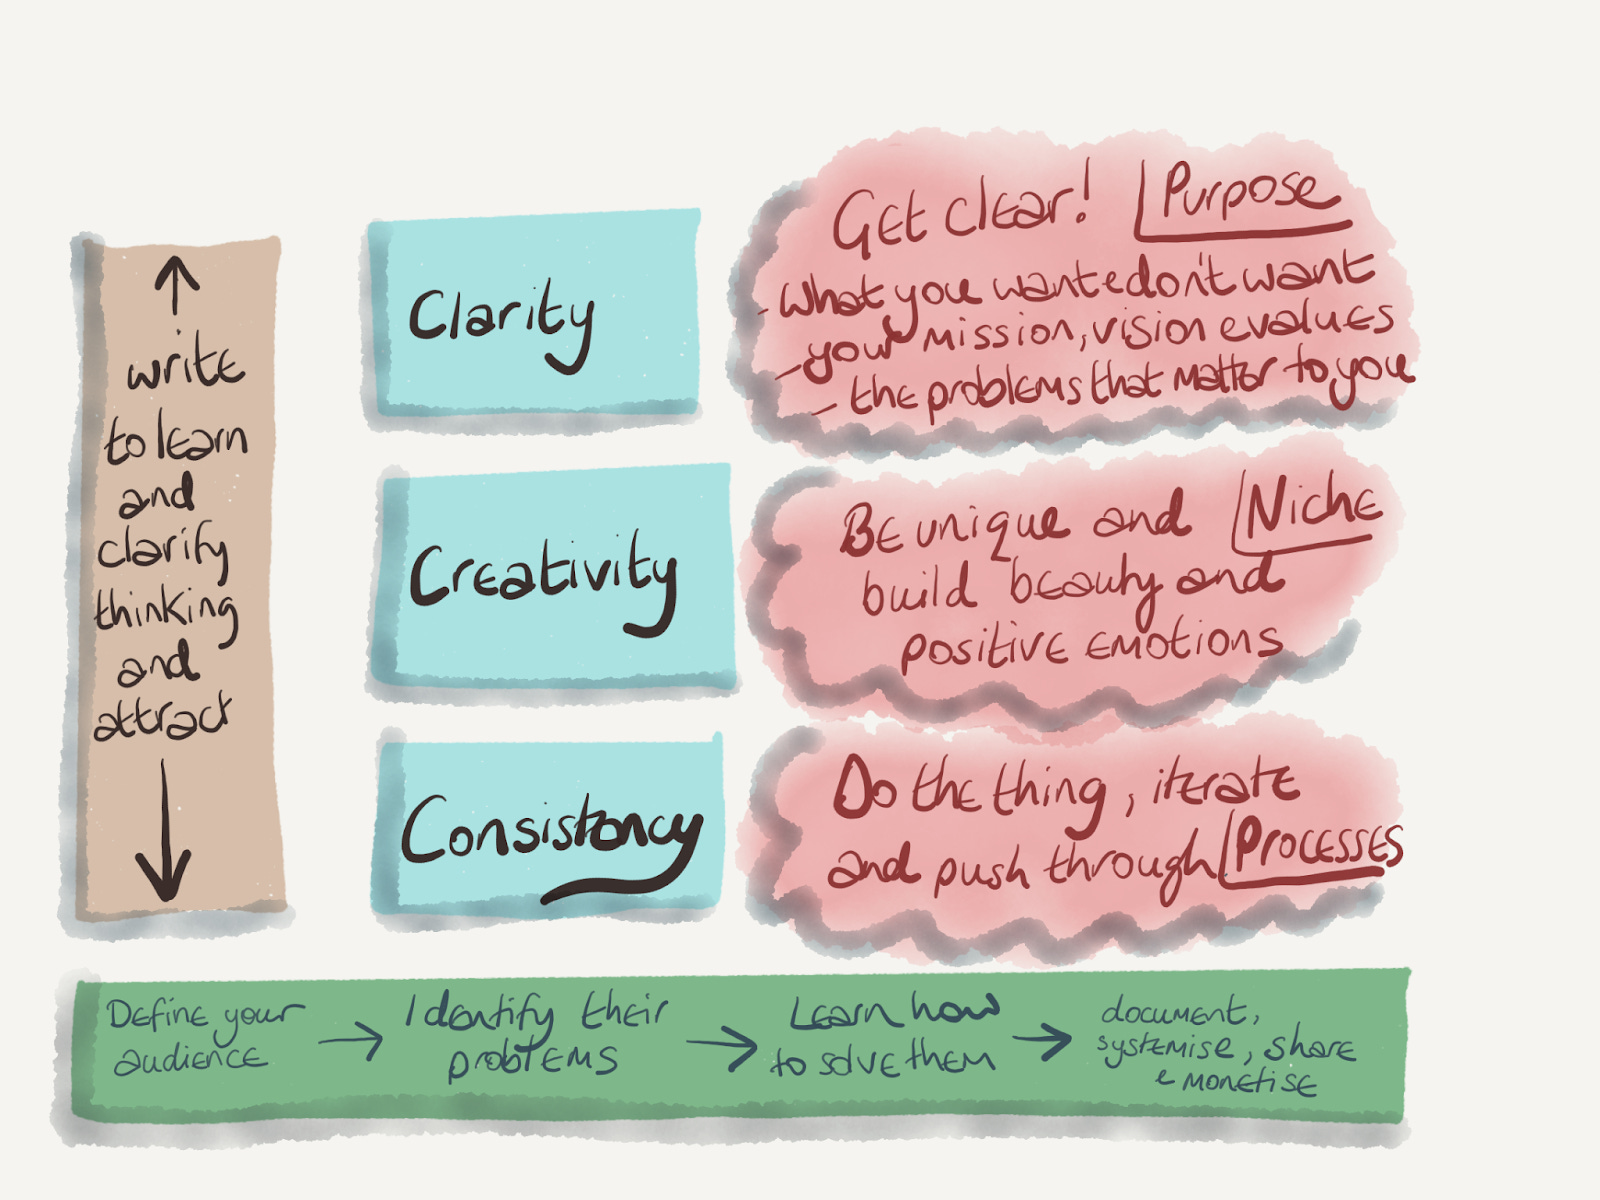 write
to learn
and
clarify
thinking
and
attract
Clarity
Get clear! Purpose
- What you want e don't want
- your mission, vision e values
- the problems that matter to you
Creativity
Be unique and Niche
build beauty and
positive emotions
Consistency
Do the thing, iterate
and push through Processes
Define your
audience
Identify their
problems
Learn how
to solve them
document,
systemise, share
e monetise